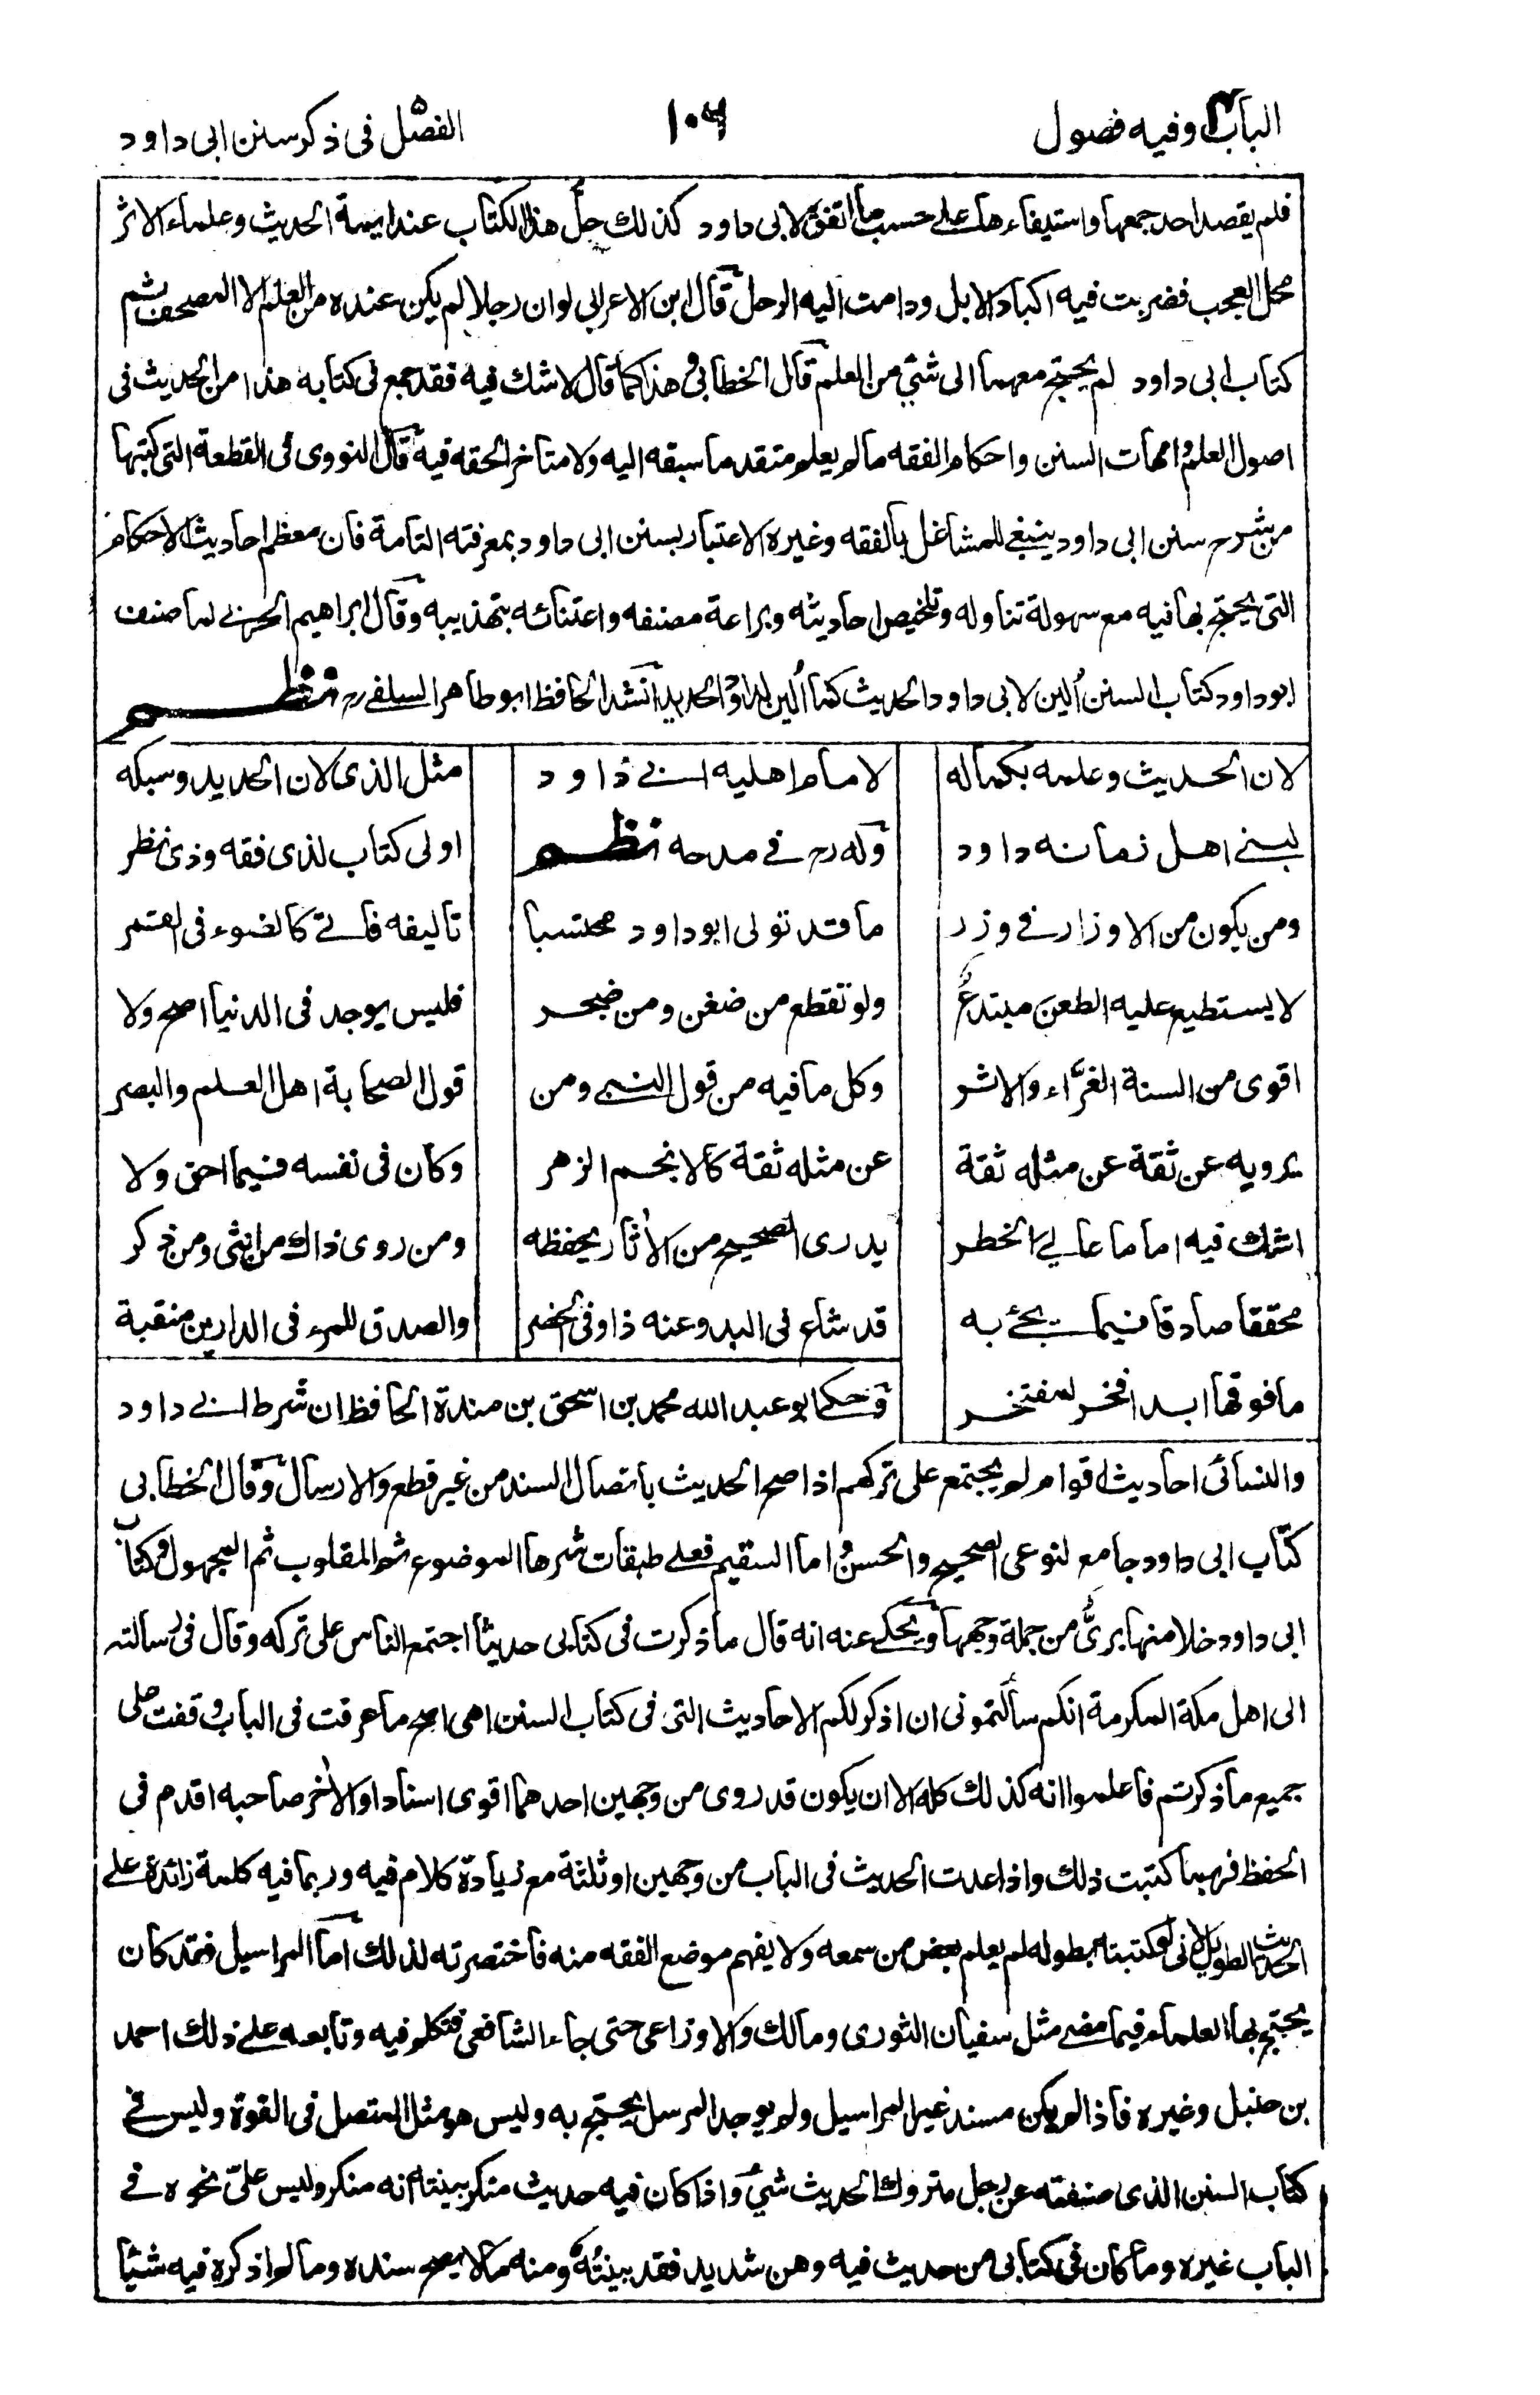 الباب وفيه فصول
١٠٦
الفصل فى ذكر سنن ابى داود
فلم يقصد احد جمعها واستيفاءها على حسب ما اتفق لابى داود كذلك حل هذا الكتاب عند ايمة الحديث وعلماء الاثر
محل العجب فضربت فيه اكباد الابل ودامت اليه الرحل قال ابن الاعرابى لو ان رجلا لم يكن عنده من العلم الا المصحف ثم
كتاب ابى داود لم يحتج معهما الى شئ من العلم قال الخطابى وهذا كما قال لا شك فيه فقد جمع فى كتابه هذا من الحديث فى
اصول العلم وامهات السنن واحكام الفقه ما لم يعلم متقدما سبقه اليه ولا متاخرا لحقه فيه قال النووى فى القطعة التى كتبها
من شرح سنن ابى داود ينبغى للمشاغل بالفقه وغيره الاعتبار بسنن ابى داود بمعرفته التامة فان معظم احاديث الاحكام
التى يحتج بها فيه مع سهولة تناوله وتلخيص احاديثه وبراعة مصنفه واعتنائه بتهذيبه وقال ابراهيم الحربى لما صنف
ابو داود كتاب السنن اُلين لابى داود الحديث كما اُلين لداود الحديد انشد الحافظ ابو طاهر السلفى رح نظم
لان الحديث وعلمه بكماله
لامام اهليه ابى داود
مثل الذى لان الحديد وسبكه
لبنى اهل زمانه داود
وله رح فى مدحه نظم
اولى كتاب لذى فقه وذى نظر
ومن يكون من الاوزار فى وزر
ما قد تولى ابو داود محتسبا
تاليفه فاتى كالضوء فى القمر
لا يستطيع عليه الطعن مبتدعٌ
ولو تقطع من ضغن ومن ضجر
فليس يوجد فى الدنيا اصح ولا
اقوى من السنة الغرّاء والاثر
وكل ما فيه من قول النبى ومن
قول الصحابة اهل العلم والبصر
يرويه عن ثقة عن مثله ثقة
عن مثله ثقة كالانجم الزهر
وكان فى نفسه فيما احق ولا
اشك فيه اماما عالى الخطر
يدرى الصحيح من الآثار يحفظه
ومن روى ذاك من انثى ومن ذكر
محققا صادقا فيما يجئ به
قد شاع فى البدو عنه ذا وفى الحضر
والصدق للمرء فى الدارين منقبة
ما فوقها ابدا فخر لمفتخر
وحكى ابو عبد الله محمد بن اسحق بن مندة الحافظ ان شرط ابى داود
والنسائى احاديث اقوام لم يجتمع على تركهم اذا صح الحديث باتصال السند من غير قطع والارسال وقال الخطابى
كتاب ابى داود جامع لنوعى الصحيح والحسن واما السقيم فعلى طبقات شرها الموضوع ثم المقلوب ثم المجهول وكتاب
ابى داود خلا منها برىٌ من جملة وجهها ويحكى عنه انه قال ما ذكرت فى كتابى حديثا اجتمع الناس على تركه وقال فى رسالته
الى اهل مكة المكرمة انكم سألتمونى ان اذكر لكم الاحاديث التى فى كتاب السنن اهى اصح ما عرفت فى الباب وقفت على
جميع ما ذكرتم فاعلموا انه كذلك كله الا ان يكون قد روى من وجهين احدهما اقوى اسنادا والآخر صاحبه اقدم فى
الحفظ فربما كتبت ذلك واذا اعدت الحديث فى الباب من وجهين او ثلثة مع زيادة كلام فيه وربما فيه كلمة زائدة على
الحديث الطويل لانى لو كتبته بطوله لم يعلم بعض من سمعه ولا يفهم موضع الفقه منه فاختصرته لذلك اما المراسيل فقد كان
يحتج بها العلماء فيما مضى مثل سفيان الثورى ومالك والاوزاعى حتى جاء الشافعى فتكلم فيه وتابعه على ذلك احمد
بن حنبل وغيره فاذا لم يكن مسند غير المراسيل ولم يوجد المرسل يحتج به وليس هو مثل المتصل فى القوة وليس فى
كتاب السنن الذى صنفته عن رجل متروك الحديث شئ واذا كان فيه حديث منكر بينته انه منكر وليس على نحوه فى
الباب غيره وما كان فى كتابى من حديث فيه وهن شديد فقد بينتُه ومنه ما لا يصح سنده وما لم اذكر فيه شيئا